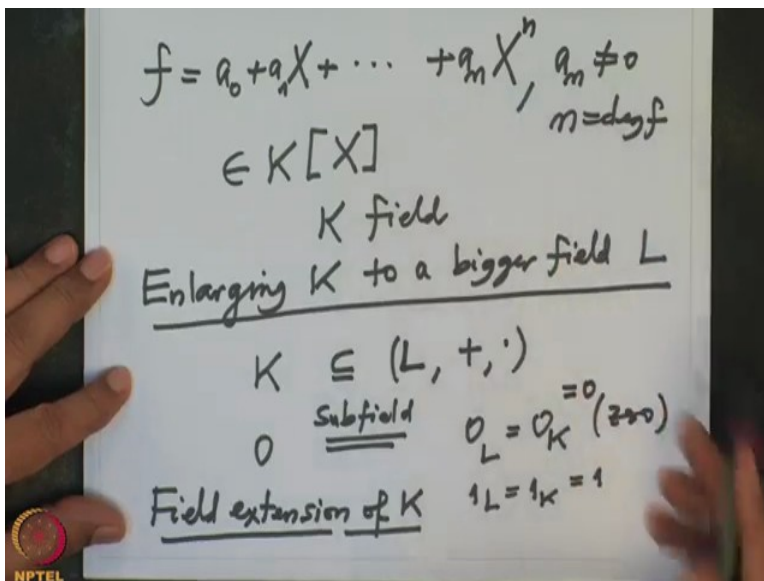 f = a₀ + a₁X + ··· + aₙXⁿ, aₙ ≠ 0
n = deg f
∈ K[X]
K field
Enlarging K to a bigger field L
K ⊆ (L, +, ·)
O subfield 0_L = 0_K = 0 (zero)
Field extension of K 1_L = 1_K = 1
NPTEL